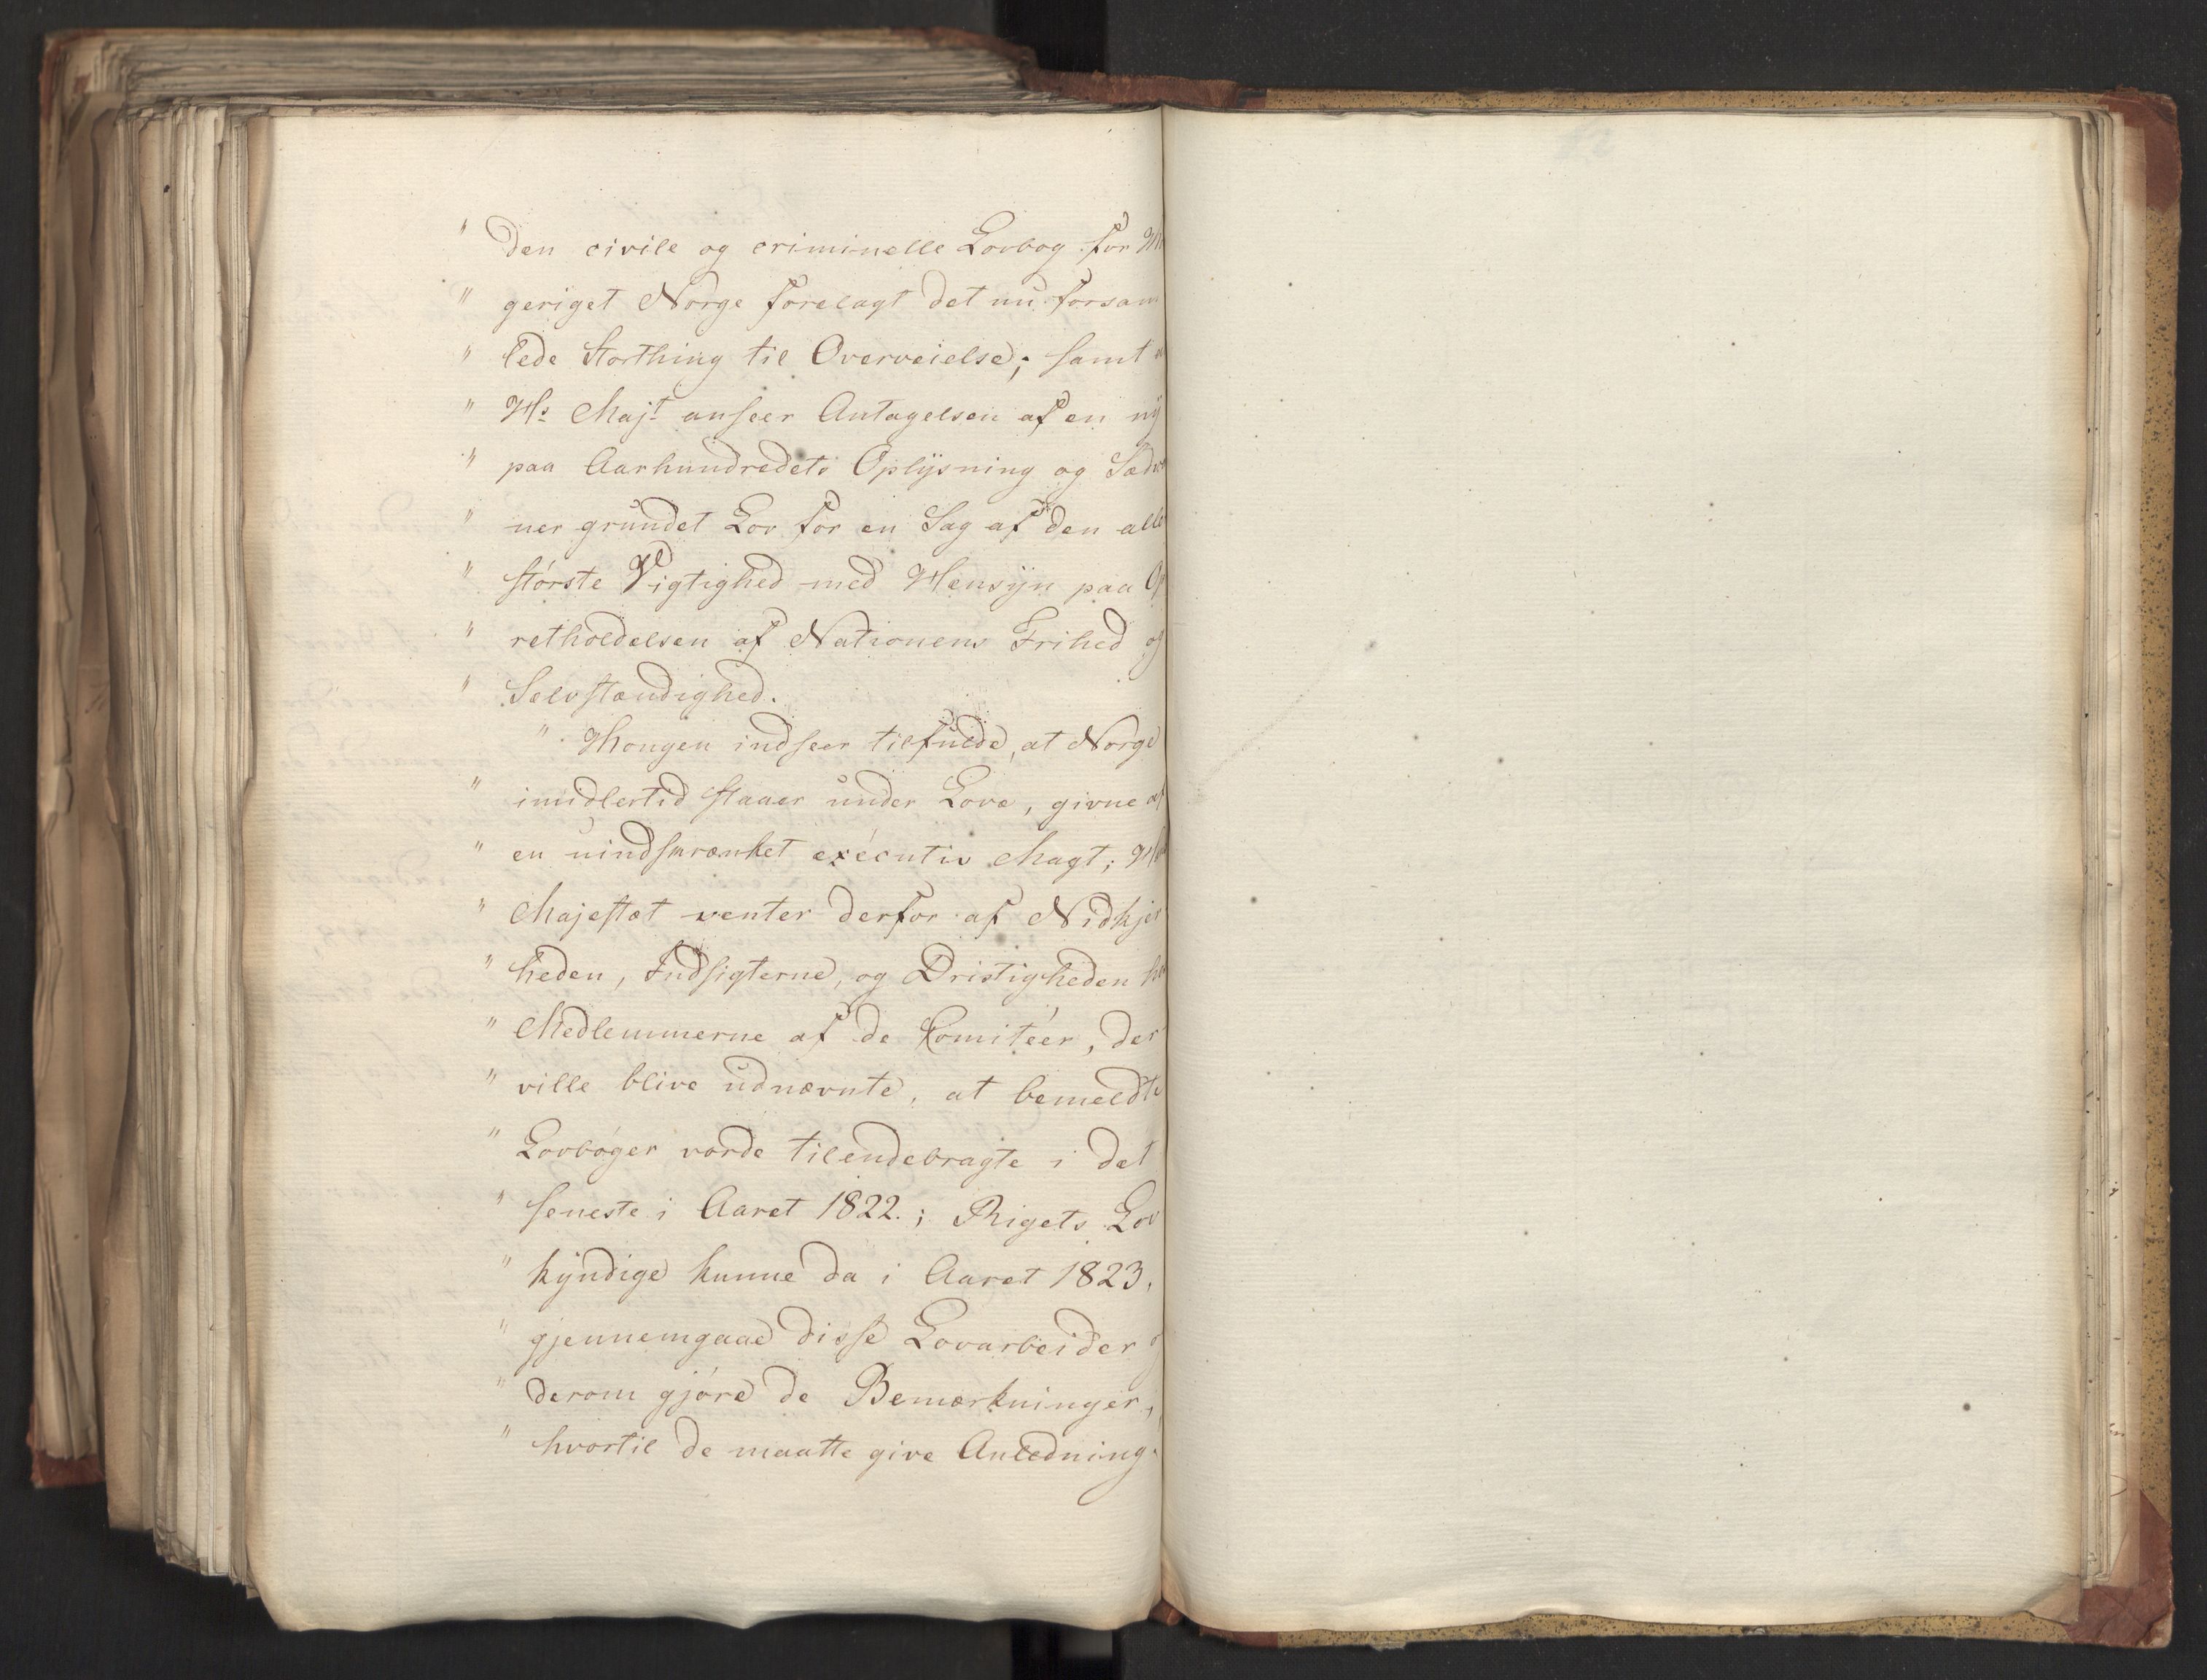 " den civile og criminelle Lovbog for
" geriget Norge forelagt det nu forsam
" lede Storthing til Overveielse; samt
" Hs Majt anseer Antagelsen af en ny
" paa Aarhundredets Oplysning og Sæd
" ner grundet Lov for en Sag af den alle
" største Vigtighed med Hensyn paa Op
" retholdelsen af Nationens Frihed og
" Selvstændighed.
" Kongen indseer tilfulde, at Norge
" imidlertid staaer under Love, givne af
" en uindskrænket exécutiv Magt; 
" Majestæt venter derfor af Nidkjer
" heden, Indsigterne, og Dristigheden hos
" Medlemmerne af de Comitéer, der
" ville blive udnævnte, at bemeldte
" Lovbøger vorde tilendebragte i det
" seneste i Aaret 1822.; Rigets Lov
" kyndige kunne da i Aaret 1823,
" gjennemgaae disse Lovarbeider
" derom gjøre de Bemærkninger,
" hvortil de maatte give Anledning.